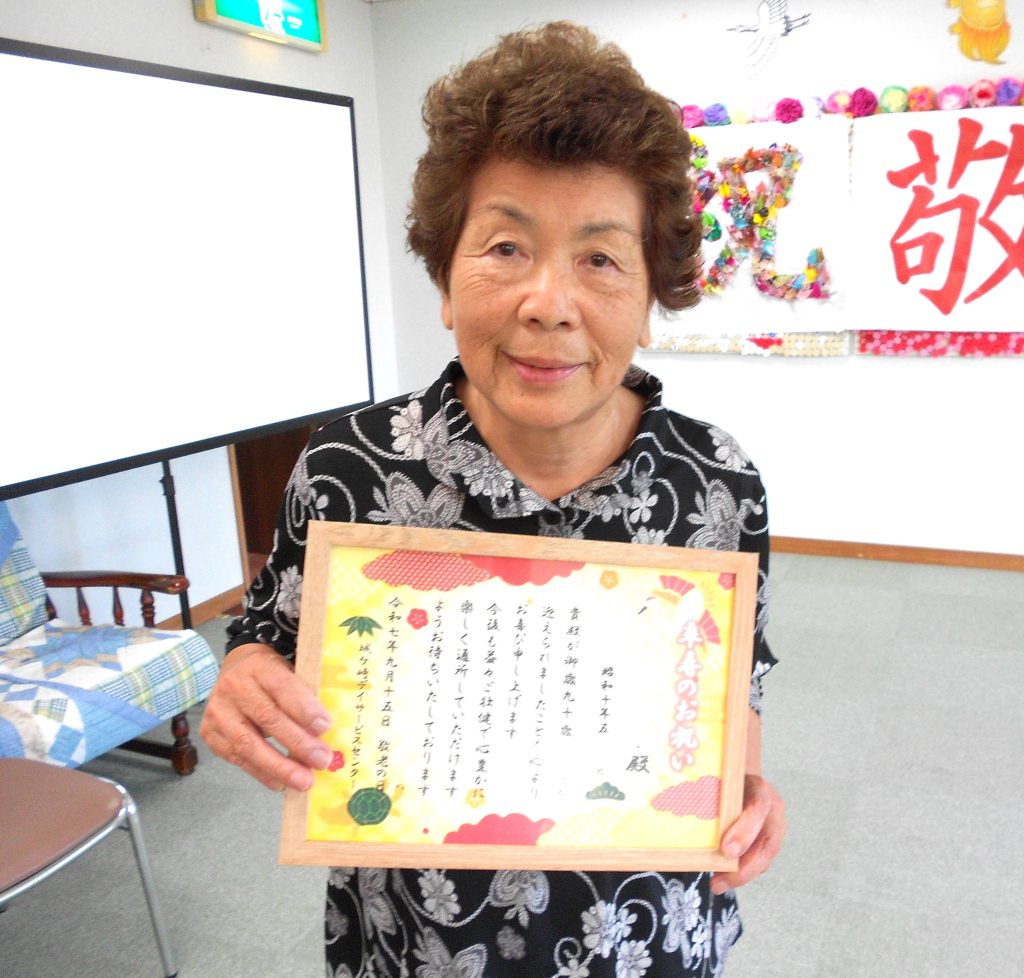 祝
敬
卒寿のお祝い
殿
昭和十年五
貴殿が御歳九十歳
迎えられましたこと心より
お喜び申し上げます
今後も益々ご壮健で心豊かに
楽しく通所していただけます
ようお待ちいたしております
令和七年九月十五日 敬老の日
城ケ崎デイサービスセンター